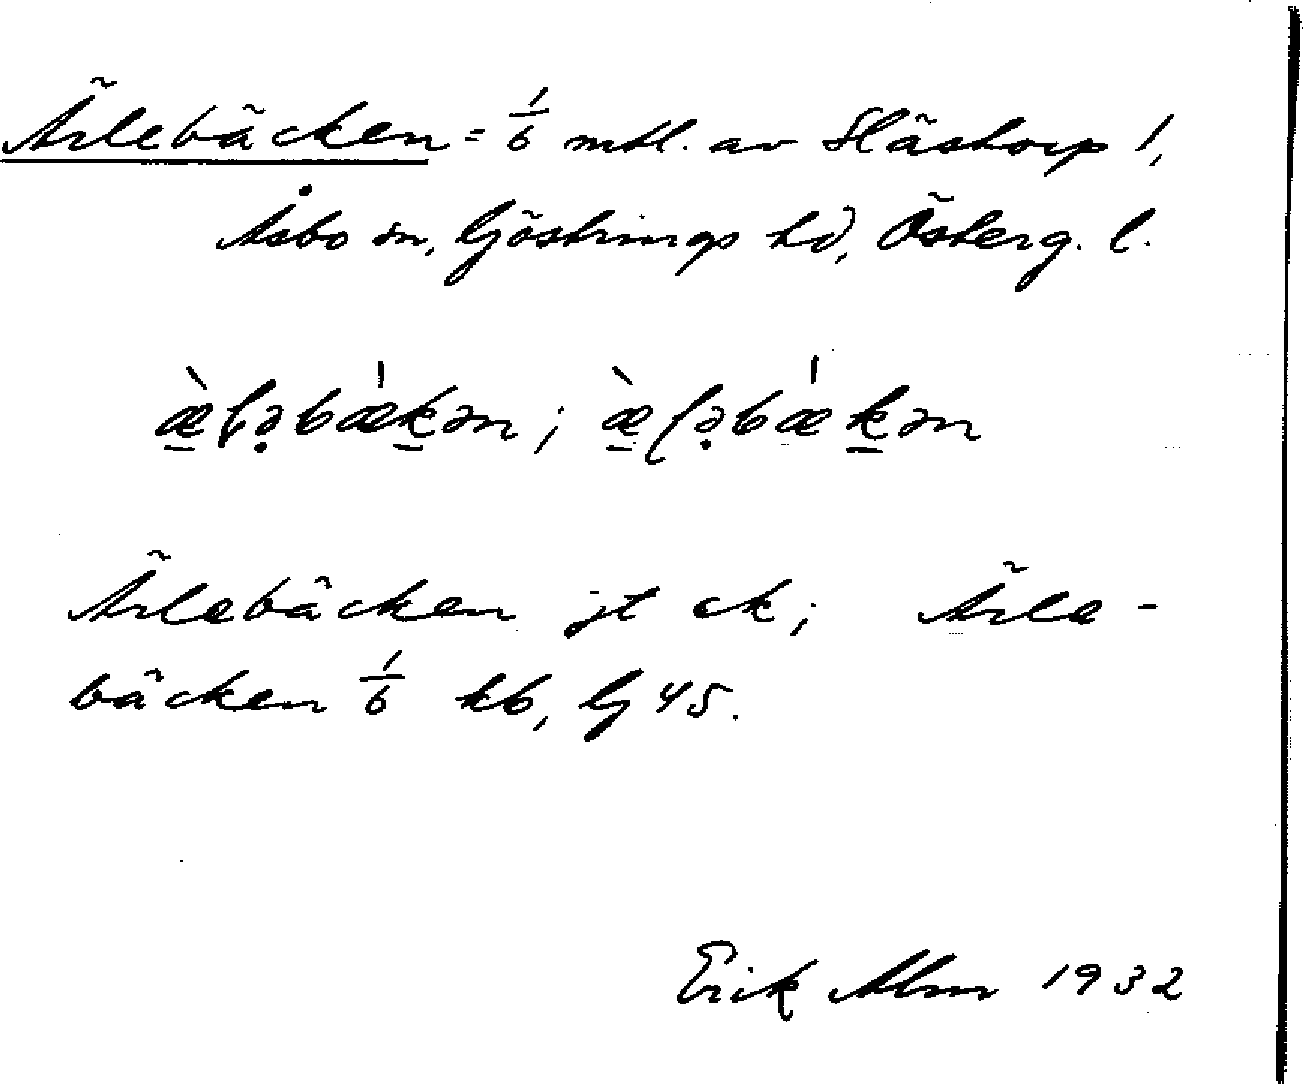 Ärlebäcken = 1/6 mtl. av Slästorp 1,
Åsbo sn, Göstrings hd, Österg. l.
Ärlebäcken jt ek; Ärle-
bäcken 1/6 kb, lj 45.
Erik Alm 1932